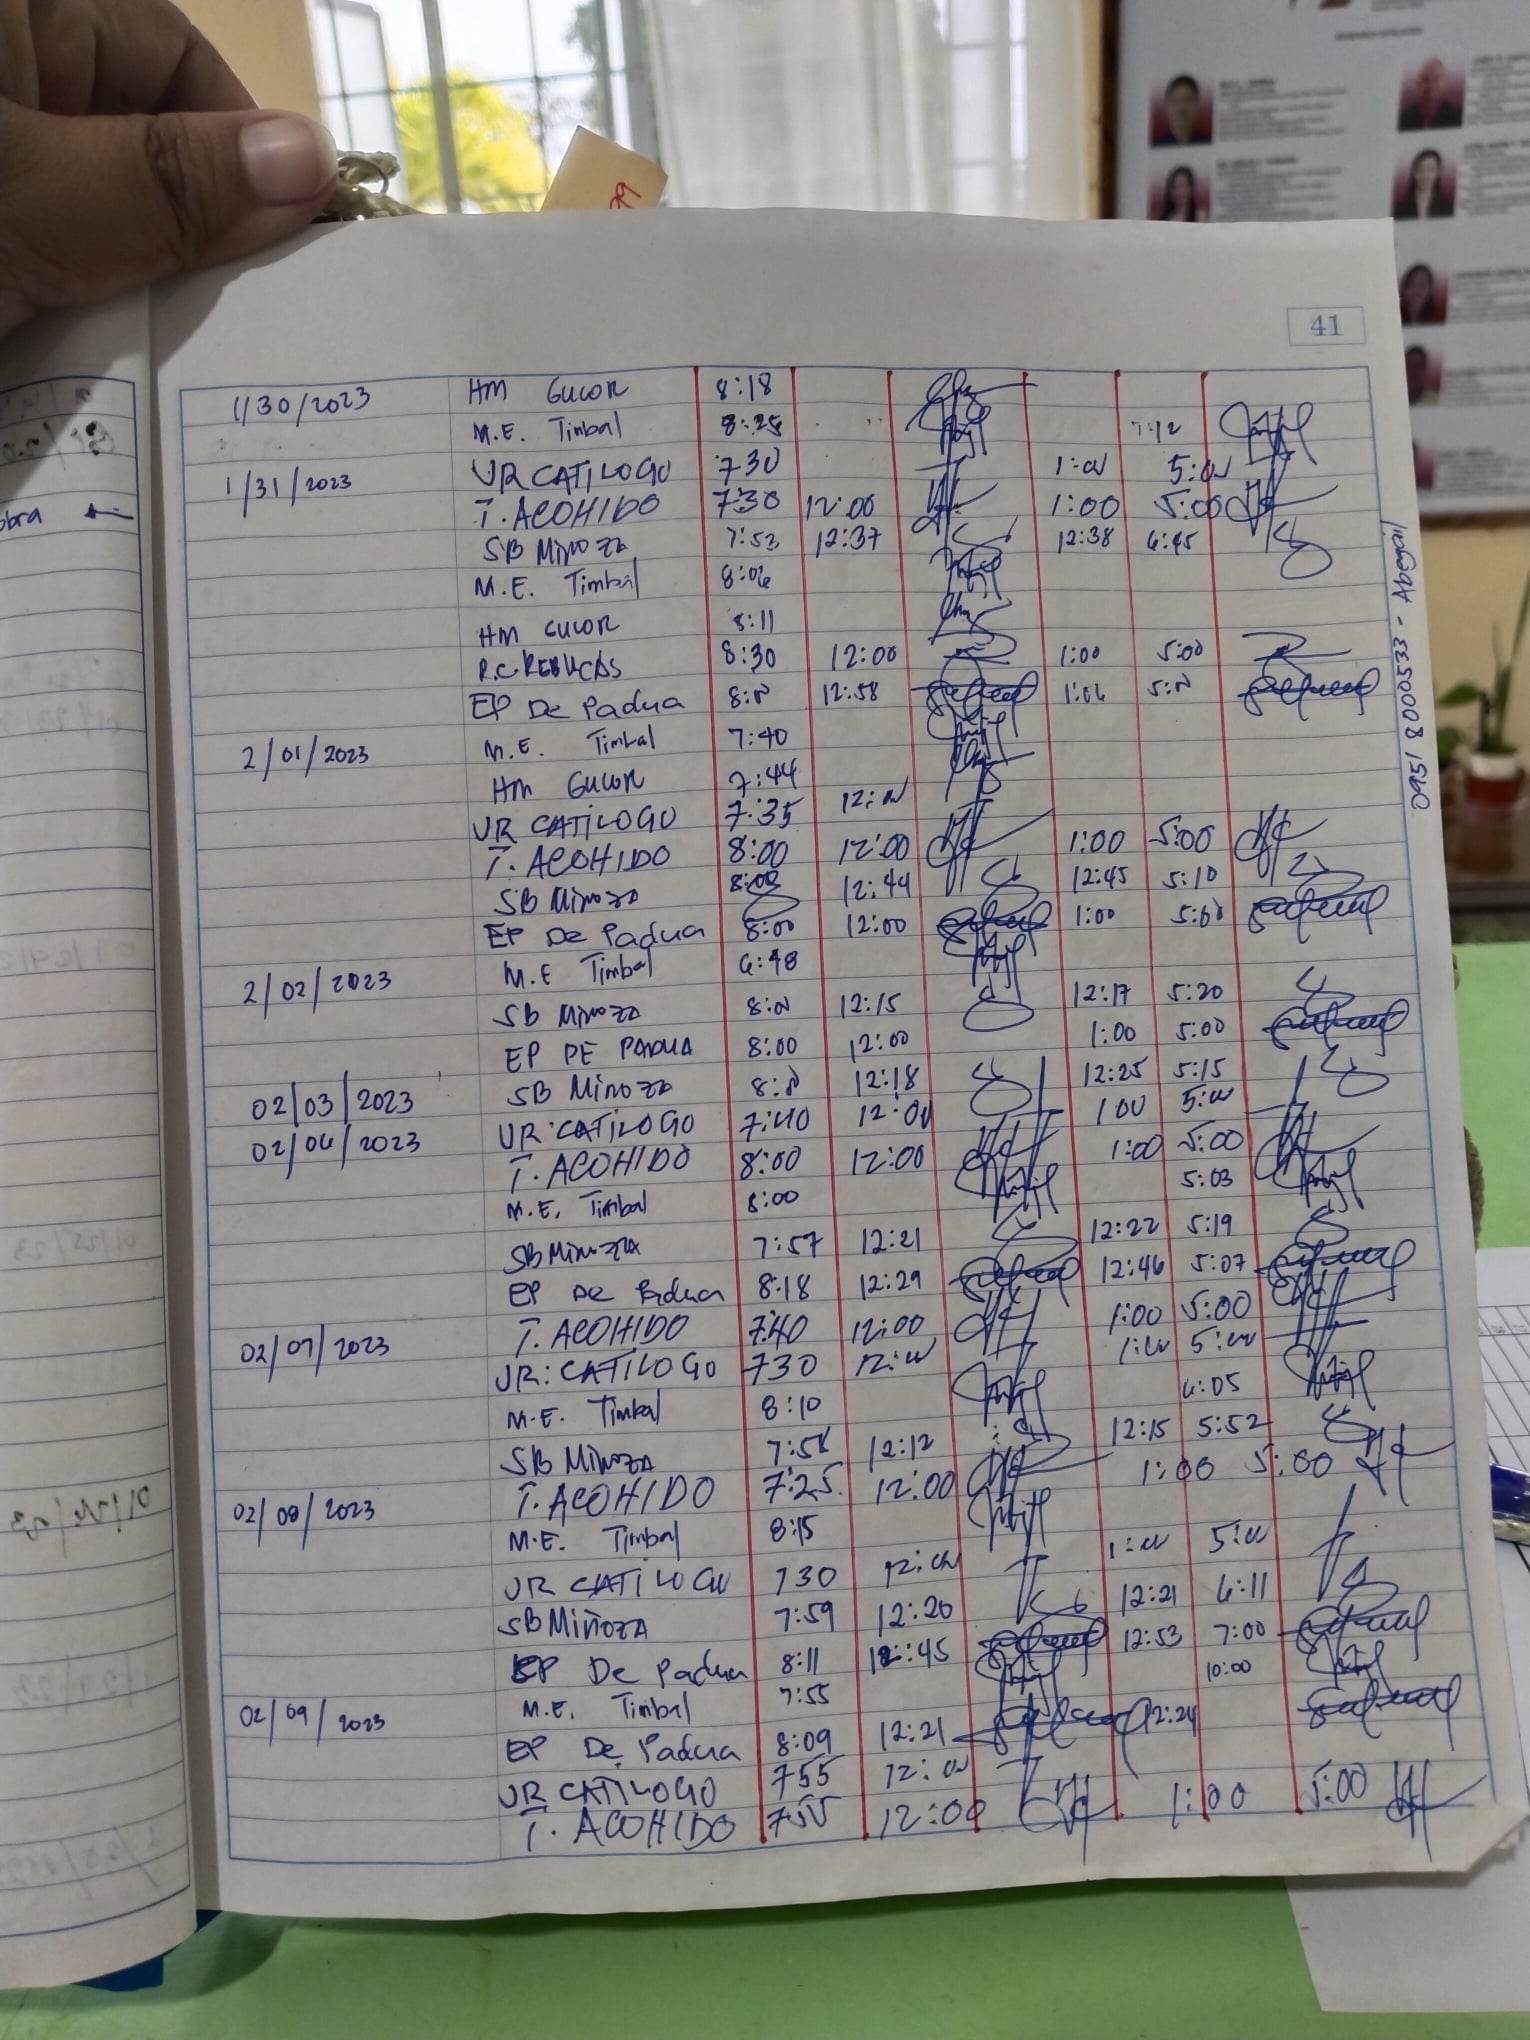 41
1/30/2023 HM GUCOR 8:18
M.E. Timbal 8:25 7:12
1/31/2023 UR CATILOGO 730 1:00 5:00
T. ACOHIDO 7:30 12:00 1:00 5:00
SB Minoza 7:53 12:37 12:38 6:45
M.E. Timbal 8:06
HM GUCOR 8:11
R.C. REBUCAS 8:30 12:00 1:00 5:00
EP De Padua 8:00 12:58 1:06 5:00
2/01/2023 M.E. Timbal 7:40
HM GUCOR 7:44
UR CATILOGO 7:35 12:00
T. ACOHIDO 8:00 12:00 1:00 5:00
SB Minoza 8:00 12:44 12:45 5:10
EP De Padua 8:00 12:00 1:00 5:00
2/02/2023 M.E Timbal 6:48
SB Minoza 8:00 12:15 12:17 5:20
EP DE PADUA 8:00 12:00 1:00 5:00
02/03/2023 SB Minoza 8:00 12:18 12:25 5:15
02/06/2023 UR CATILOGO 7:40 12:00 100 5:00
T. ACOHIDO 8:00 12:00 1:00 5:00
M.E. Timbal 8:00 5:03
SB Minoza 7:57 12:21 12:22 5:19
EP De Padua 8:18 12:29 12:46 5:07
02/07/2023 T. ACOHIDO 7:40 12:00 1:00 5:00
UR: CATILOGO 730 12:00 1:00 5:00
M.E. Timbal 8:10 6:05
SB Minoza 7:58 12:12 12:15 5:52
02/08/2023 T. ACOHIDO 7:25 12:00 1:00 5:00
M.E. Timbal 8:15
UR CATILOGO 730 12:00 1:00 5:00
SB Miñoza 7:59 12:20 12:21 6:11
EP De Padua 8:11 12:45 12:53 7:00
02/09/2023 M.E. Timbal 7:55 10:00
EP De Padua 8:09 12:21 12:24
UR CATILOGO 755 12:00
T. ACOHIDO 755 12:00 1:00 5:00
0951 8000533 - Abegail